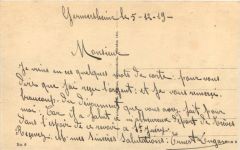 Germersheim le 5-12-19-
Monsieur
Je viens en ces quelques mots de carte pour vous
dire que j'ai reçu l'argent, et je vous remercie
beaucoup du dévouement que vous avez fait pour
moi Car il a fallut
dans l'espoir de ce revoir à
Recevez Mr mes Sincères Salutations: Ernest